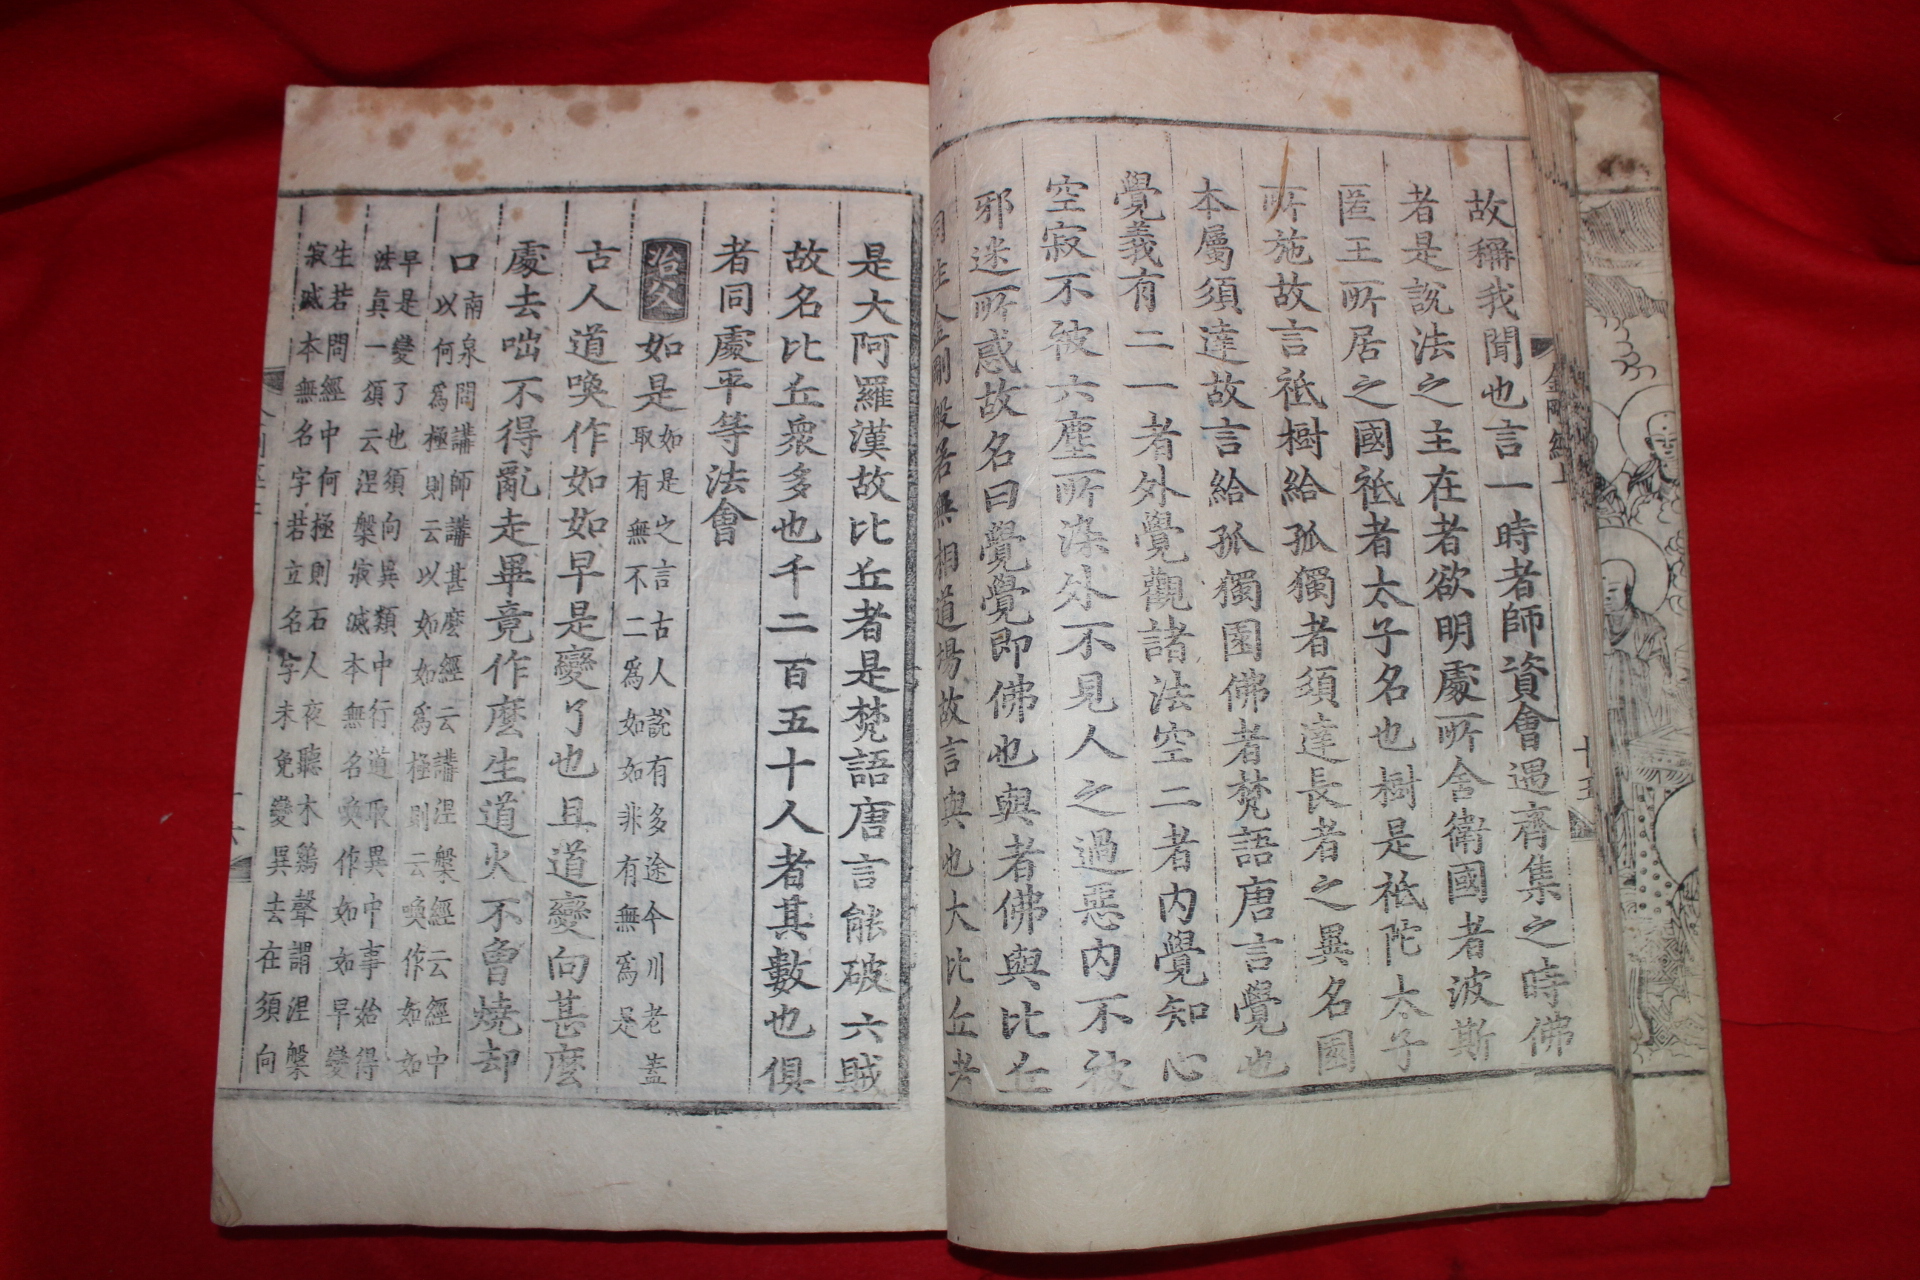 故稱我聞也言一時者師資會遇齊集之時佛
者是說法之主在者欲明處所舍衛國者波斯
匿王所居之國祇者太子名也樹是祇陀太子
所施故言祇樹給孤獨者須達長者之異名園
本屬須達故言給孤獨園佛者梵語唐言覺也
覺義有二一者外覺觀諸法空二者內覺知心
空寂不被六塵所染外不見人之過惡內不被
邪迷所惑故名曰覺覺即佛也與者佛與比丘
同住金剛般若無相道場故言與也大比丘者
是大阿羅漢故比丘者是梵語唐言能破六賊
故名比丘衆多也千二百五十人者其數也俱
者同處平等法會
冶父如是
如是之言古人說有多途今川老盖
取有無不二爲如如非有無爲是
古人道喚作如如早是變了也且道變向甚麽
處去咄不得亂走畢竟作麽生道火不曾燒却
口
南泉問講師講甚麽經云講涅槃經云經中
以何爲極則云以如如爲極則云喚作如如
早是變了也須向異類中行道取異中事始得
法眞一頌云涅槃寂滅本無名喚作如如早變
生若問經中何極則石人夜聽木鷄聲謂涅槃
寂滅本無名字若立名字未免變異去在須向
金剛經上
十五